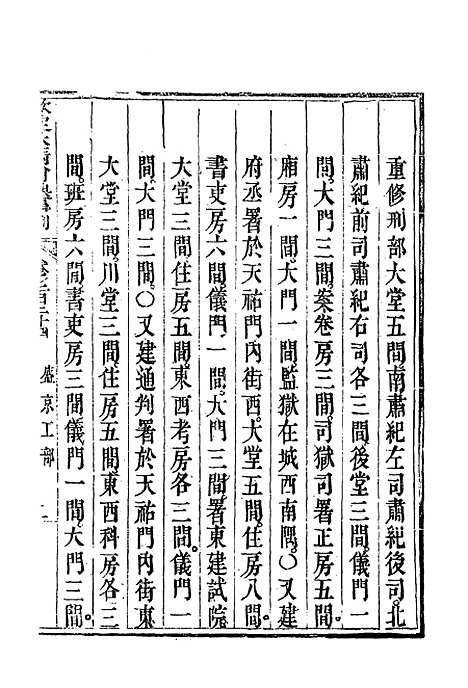 重修刑部大堂五間南肅紀左司肅紀後司北
肅紀前司肅紀右司各三間後堂三間儀門一
間大門三間案卷房三間司獄司署正房五間
廂房一間大門一間監獄在城西南隅〇又建
府丞署於天祐門內街西大堂五間住房八間
書吏房六間儀門一間大門三間署東建試院
大堂三間住房五間東西考房各三間儀門一
間大門三間〇又建通判署於天祐門內街東
大堂三間川堂三間住房五間東西科房各三
間班房六間書吏房三間儀門一間大門三間
盛京工部